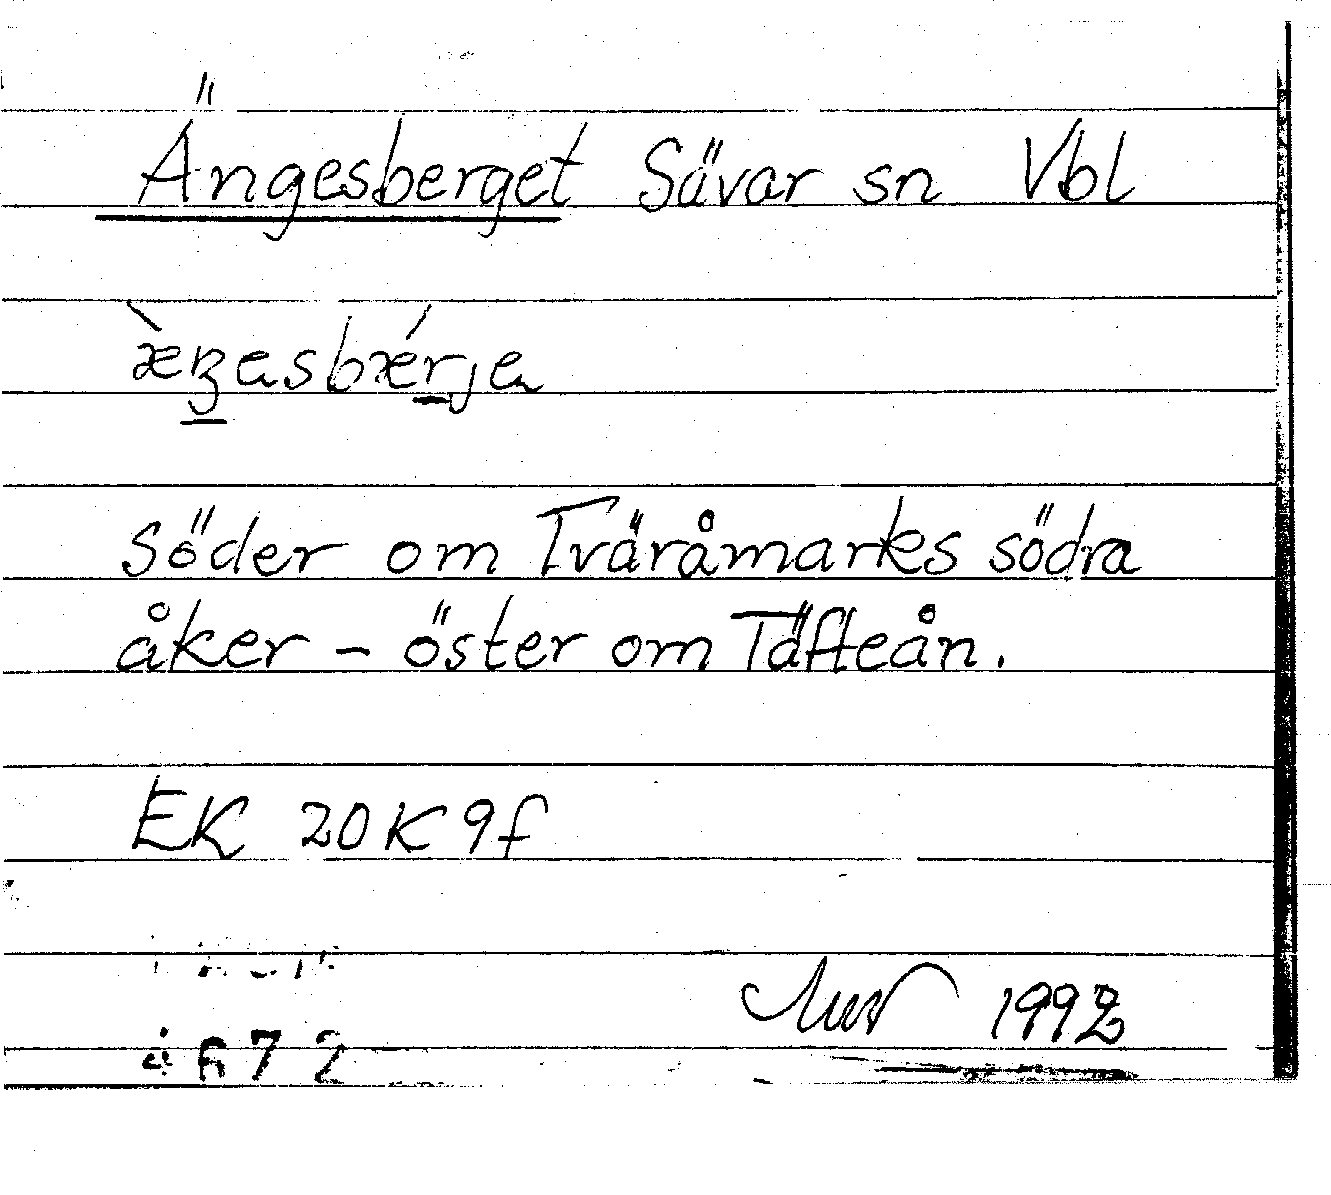 Ängesberget Sävar sn Vbl
Söder om Tväråmarks södra
åker - öster om Täfteån.
EK 20K9f
1992
672